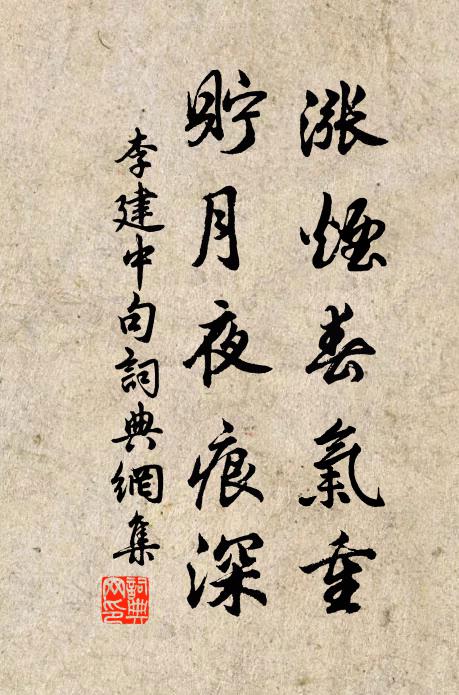 漲煙春氣重
貯月夜痕深
李建中句詞典網集
詞典网印